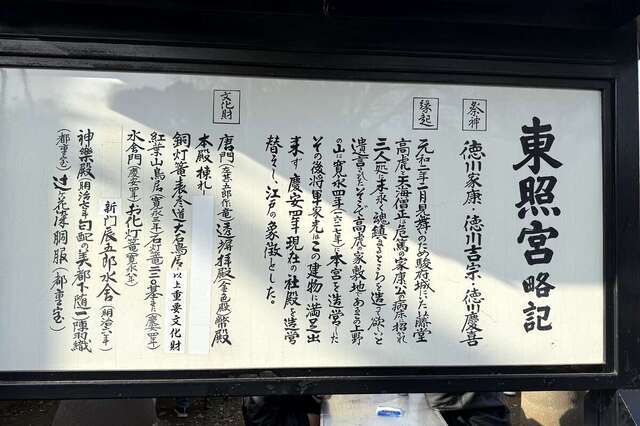 東照宮略記
祭神
徳川家康・徳川吉宗・徳川慶喜
縁起
元和二年二月見舞のため駿府城にいた藤堂
高虎と天海僧正は危篤の家康公の病床に招れ
三人一処に末永く魂鎮まるところを造って欲しいと
遺言された。そこで高虎の家敷地であるこの上野
の山に寛永四年(一六二七年)に本宮を造営した
その後将軍家光はこの建物に満足出
来ず慶安四年現在の社殿を造営
替えし、江戸の象徴とした。
文化財
唐門(左甚五郎作竜)透塀拝殿(金色殿)幣殿
本殿棟札
銅灯篭表参道大石鳥居・以上重要文化財
紅葉山鳥居(寛永年)石灯篭二二〇基(慶安四年)
水舎門(慶安四年)お化灯篭(寛永八年)
新門辰五郎水舎(明治六年)
神楽殿(明治七年)勾配の美都下随一陣羽織
(都重宝)辻が花染胴服(都重宝)